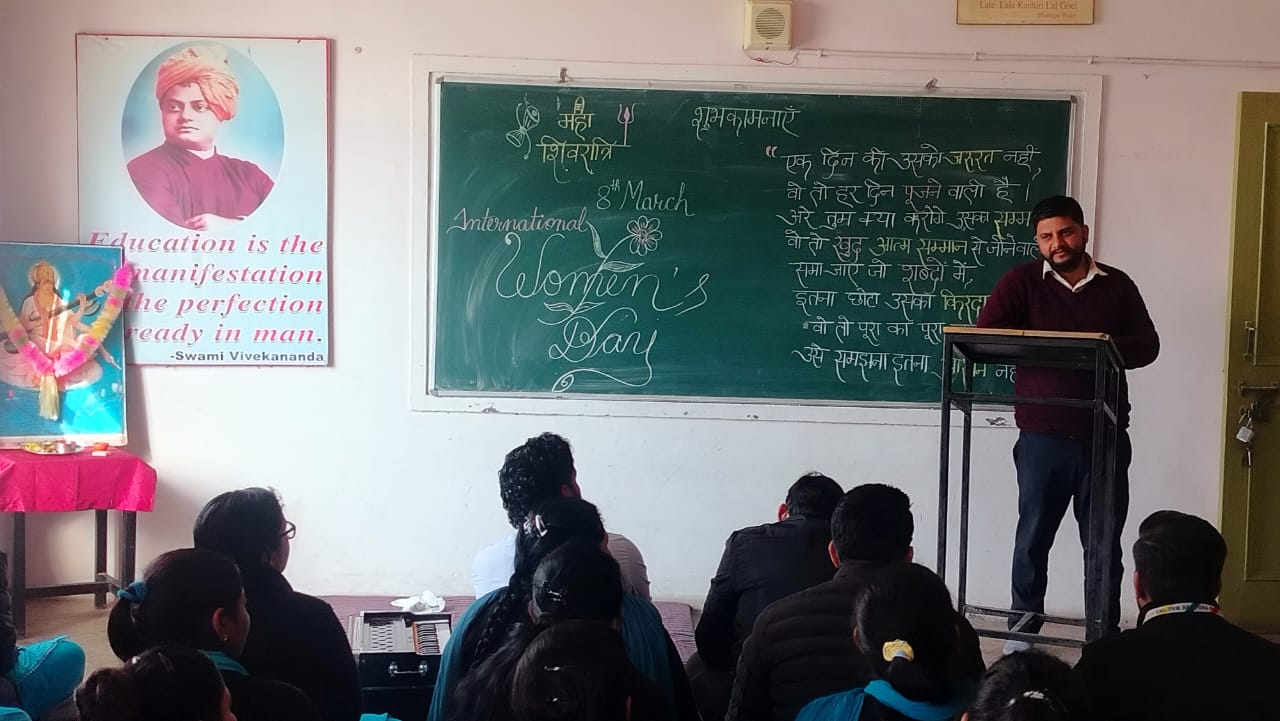 Late. Lala Kasturi Lal Goel
Education is the
manifestation
the perfection
ready in man.
-Swami Vivekananda
महा
शिवरात्रि
शुभकामनाएँ
8th March
International
Women's
Day
"एक दिन की उसको जरुरत नहीं,
वो तो हर दिन पूजने वाली है।
अरे तुम क्या करोगे उसका सम्म
वो तो खुद आत्म सम्मान से जीने वा
समा जाए जो शब्दों में,
इतना छोटा उसका किरदा
वो तो पूरा का पूरा
उसे समझना इतना नह